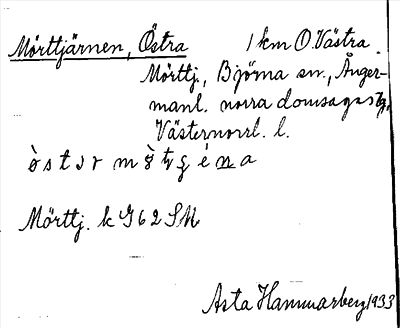 Mörttjärnen, Östra 1 km O. Västra
Mörttj., Björna sn., Ånger-
manl. norra domsagas tg,
Västernorrl. l.
Mörttj. k G 62 SM
Asta Hammarberg 1933